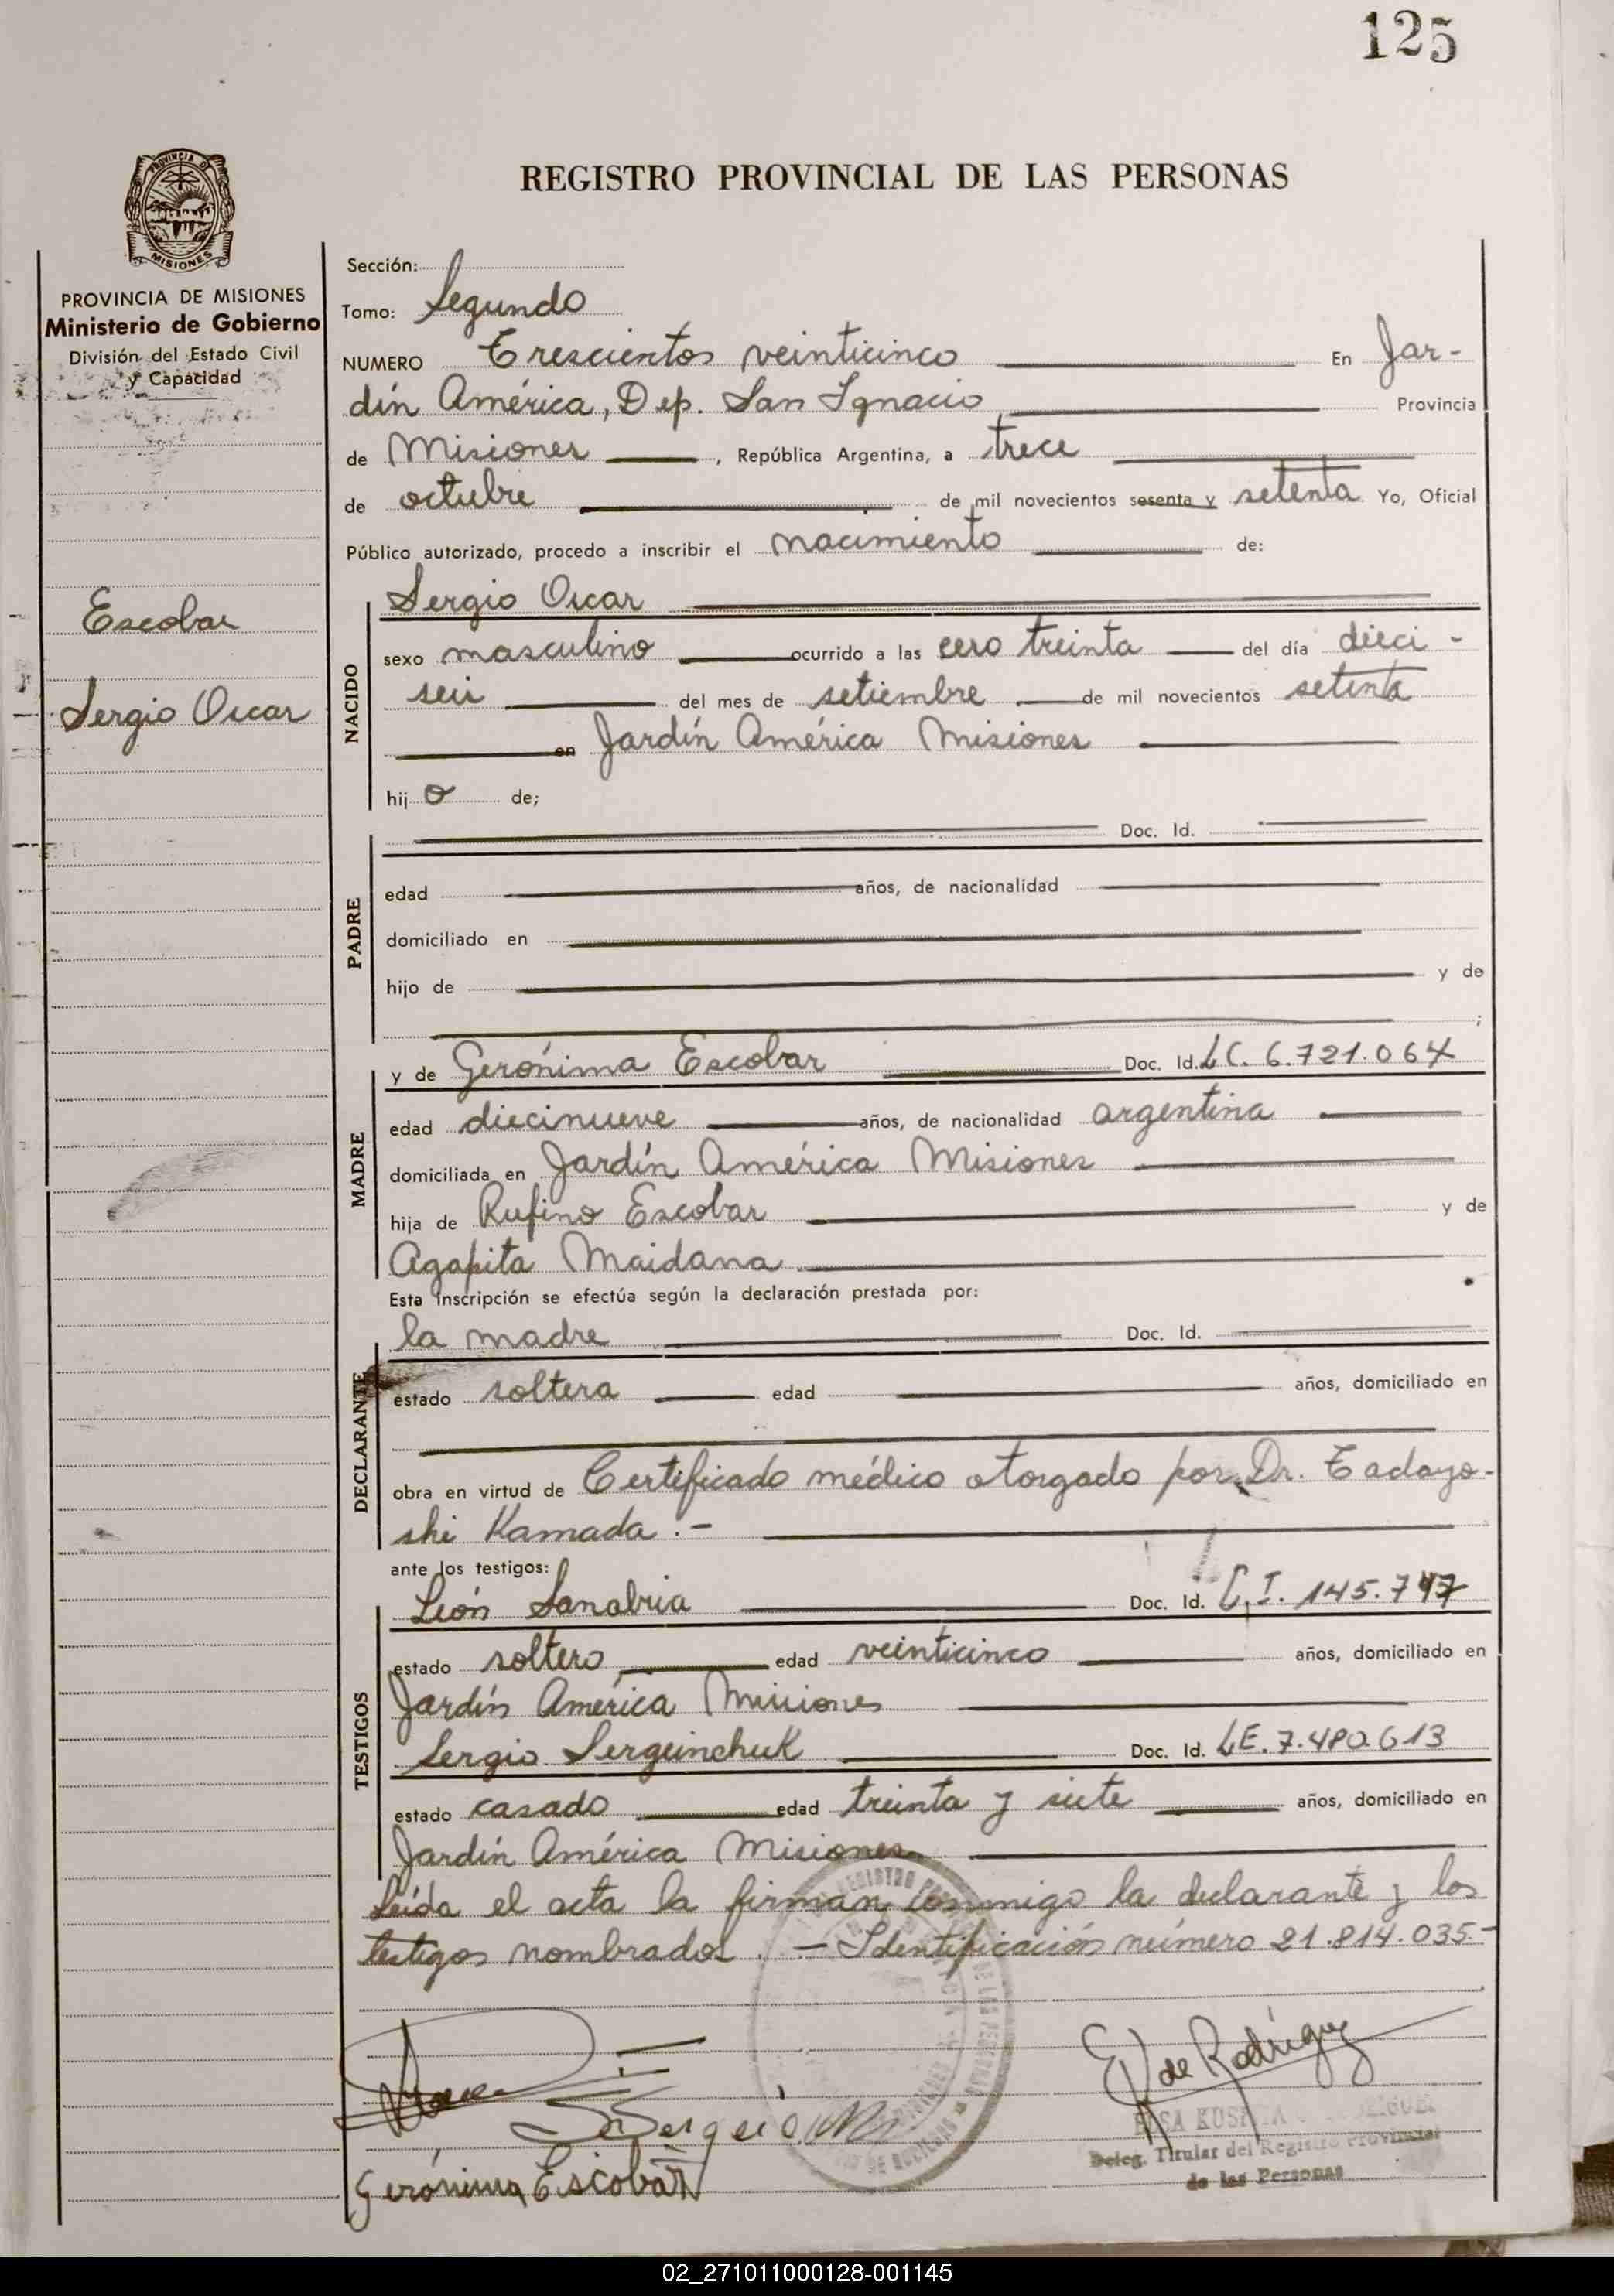 125
REGISTRO PROVINCIAL DE LAS PERSONAS
PROVINCIA DE MISIONES
Ministerio de Gobierno
División del Estado Civil
y Capacidad
Escobar
Sergio Oscar
Sección:
Tomo: Segundo
NUMERO Trescientos veinticinco En Jar-
dín América, Dep. San Ignacio Provincia
de Misiones, República Argentina, a trece
de octubre de mil novecientos sesenta y setenta Yo, Oficial
Público autorizado, procedo a inscribir el nacimiento de:
Sergio Oscar
NACIDO
sexo masculino ocurrido a las cero treinta del día dieci-
seis del mes de setiembre de mil novecientos setenta
en Jardín América Misiones
hijo de;
PADRE
Doc. Id.
edad años, de nacionalidad
domiciliado en
hijo de y de
;
MADRE
y de Gerónima Escobar Doc. Id. LC. 6.721.064
edad diecinueve años, de nacionalidad argentina
domiciliada en Jardín América Misiones
hija de Rufino Escobar y de
Agapita Maidana
Esta inscripción se efectúa según la declaración prestada por:
DECLARANTE
la madre Doc. Id.
estado soltera edad años, domiciliado en
obra en virtud de Certificado médico otorgado por Dr. Tadayo-
shi Kamada.-
ante los testigos:
TESTIGOS
León Sanabria Doc. Id. C.I. 145.747
estado soltero edad veinticinco años, domiciliado en
Jardín América Misiones
Sergio Sergeinchuk Doc. Id. LE. 7.480.613
estado casado edad treinta y siete años, domiciliado en
Jardín América Misiones
Leída el acta la firman conmigo la declarante y los
testigos nombrados. - Identificación número 21.814.035.-
E de Rodríguez
Sergio
Gerónima Escobar
Deleg. Titular del Registro Provincial
de las Personas
02_271011000128-001145